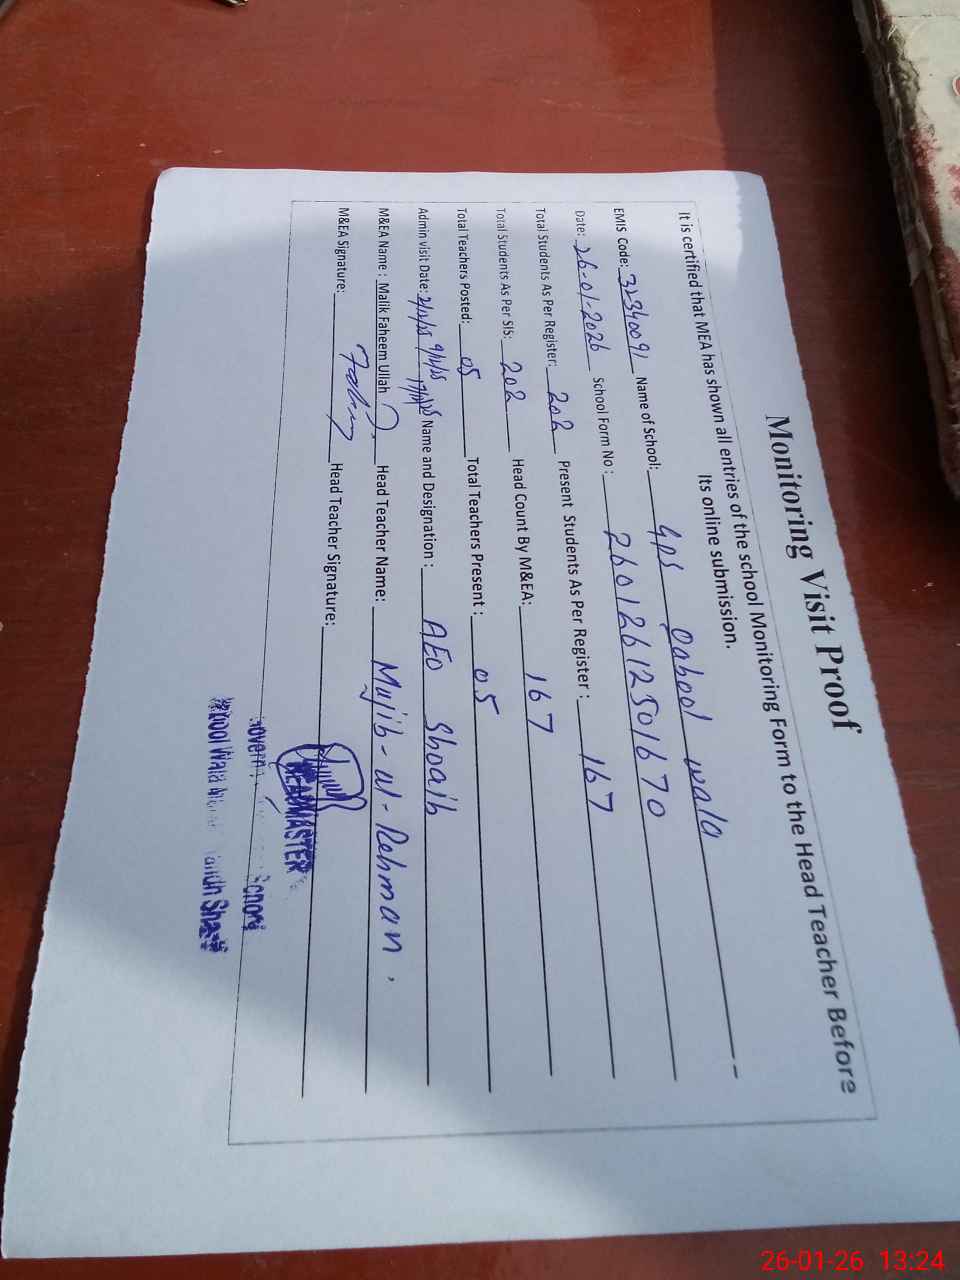 Monitoring Visit Proof
It is certified that MEA has shown all entries of the school Monitoring Form to the Head Teacher Before
Its online submission.
EMIS Code: 32340091 Name of School: Gps Qabool wala
Date: 26-01-2026 School Form No : 26012612501670
Total Students As Per Register: 202 Present Students As Per Register : 167
Total Students As Per SIS: 202 Head Count By M&EA: 167
Total Teachers Posted: 05 Total Teachers Present : 05
Admin visit Date: 2/12/25 9/12/25 Name and Designation : AEO Shoaib
M&EA Name : Malik Faheem Ullah Head Teacher Name: Mujib-ul-Rehman.
M&EA Signature: Head Teacher Signature:
HEADMASTER
26-01-26 13:24